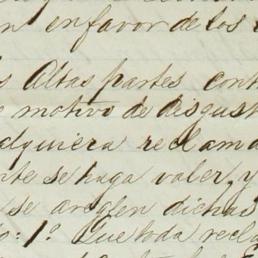 n en favor de los
s Altas partes cont
e motivo de disgust
alquiera reclama
nte se haga valer, y
se areglen dichas
o: 1º. Que toda recla